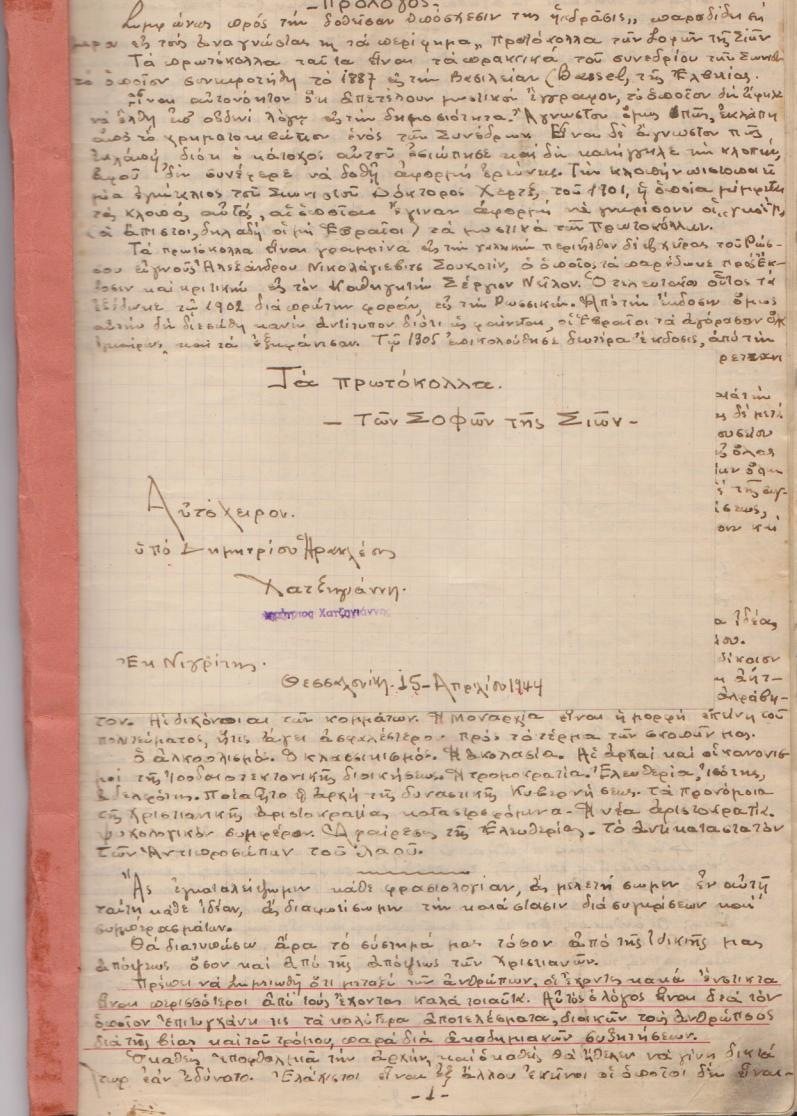 Πρόλογος.
Συμφώνως πρὸς τὴν δοθεῖσαν ὑπόσχεσιν της ἡ „δρᾶσις„ παραδίδει σή
μερον εἰς τοὺς ἀναγνώστας της τὰ περίφημα „Πρωτόκολλα τῶν Σοφῶν τῆς Σιών
Τὰ πρωτόκολλα ταῦτα εἶναι τὰ πρακτικά τοῦ συνεδρίου τῶν
τὸ ὁποῖον συνεκροτήθη τὸ 1887 εἰς τὴν Βασιλείαν (Bassel, τῆς Ἑλβετίας.
Εἶναι αὐτονόητον ὅτι ἀπετέλουν μυστικόν ἔγγραφον, τὸ ὁποῖον δὲν
νὰ ἔλθῃ ἐπ' οὐδενί λόγῳ εἰς τὴν δημοσιότητα. Ἄγνωστον ὅμως πῶς, ἐκλάπη
ἀπὸ τὸ χρηματοκιβώτιον ἑνὸς τῶν Συνέδρων. Εἶναι δὲ ἄγνωστον πῶς
ἐκλάπη διότι ὁ κάτοχος αὐτοῦ ἐσιώπησε καὶ δὲν κατήγγειλε τὴν κλοπὴν,
ἀφοῦ δὲν συνέφερε νὰ δοθῇ ἀφορμὴ ἐρεύνης. Τὴν κλοπὴν πιστοποιεῖ
μία ἐγκύκλιος τοῦ Σιωνιστοῦ Δόκτορος Χέρτς, τοῦ 1901, ἡ ὁποία
τὰς κλοπὰς αὐτάς, αἱ ὁποῖαι ἔγιναν ἀφορμή νὰ γνωρίσουν οἱ „γκοΐμ„
(οἱ ἄπιστοι, δηλαδὴ οἱ μὴ Ἑβραῖοι) τὰ μυστικὰ τῶν Πρωτοκόλλων.
Τὰ πρωτόκολλα εἶναι γραμμένα εἰς τὴν γαλλικὴν περιῆλθον δὲ εἰς χεῖρας τοῦ Ρώσ-
σου εὐγενοῦς Ἀλεξάνδρου Νικολάγιεβιτς Σουχοτίν, ὁ ὁποῖος τὰ παρέδωκε πρὸς ἔκ-
δοσιν καὶ κριτικὴν εἰς τὸν καθηγητὴν Σέργιον Νεῖλον. Ὁ τελευταῖος οὗτος τὰ
ἐξέδωκε τῷ 1902 διὰ πρώτην φοράν, εἰς τὴν Ρωσσικὴν. Ἀπὸ τὴν ἔκδοσιν ὅμως
αὐτὴν δὲν διεσώθη κανὲν ἀντίτυπον διότι ὡς φαίνεται, οἱ Ἑβραῖοι τὰ ἀγόρασαν
ἐγκαίρως καὶ τὰ ἐξηφάνισαν. Τῷ 1905 ἐπηκολούθησε δευτέρα ἔκδοσις, ἀπὸ τὴν
Τά πρωτόκολλα.
— Τῶν Σοφῶν τῆς Σιών -
ς δὲ μετὰ
Αὐτόχειρον.
ὑπό Δημητρίου Ἡρακλέους
Χατζηγιάννη.
Δημήτριος Χατζηγιάννης
α ἰδέας
δίκαιον
Ἐκ Νιγρίτης.
Θεσσαλονίκη. 15-Απριλίου 1944
τον. Αἱ διχόνοιαι τῶν κομμάτων. Ἡ Μοναρχία εἶναι ἡ μορφὴ ἐκείνη τοῦ
πολιτεύματος, ἥτις ἄγει ἀσφαλέστερον πρὸς τὸ τέρμα τῶν σκοπῶν μας.
Ὁ ἀλκοολισμός. Ὁ κλασσικισμός. Ἡ ἀκολασία. Αἱ ἀρχαὶ καὶ οἱ κανονισ
μοὶ τῆς Ἰουδαιοτεκτονικῆς διοικήσεως. Ἡ τρομοκρατία. Ἐλευθερία, ἰσότης,
ἀδελφότης. Ποία ἦτο ἡ ἀρχὴ τῆς δυναστικῆς Κυβερνήσεως. τὰ προνόμοια
τῆς Χριστιανικῆς ἀριστοκρατίας καταστρεφόμενα. Ἡ νέα ἀριστοκρατία.
ψυχολογικὸν συμφέρον. Ἀφαίρεσις τῆς Ἐλευθερίας. τὸ ἀντικαταστατὸν
τῶν Ἀντιπροσώπων τοῦ λαοῦ.
"Ἄς ἐγκαταλείψωμεν κάθε φρασιολογίαν, ἄς μελετήσωμεν ἐν αὐτῇ
ταύτῃ κάθε ἰδέαν, ἄς διαφωτίσωμεν τὴν κατάστασιν διὰ συγκρίσεων καὶ
συμπερασμάτων.
Θὰ διατυπώσω ἄρα τὸ σύστημά μας τόσον ἀπὸ τῆς ἰδικῆς μας
ἀπόψεως ὅσον καὶ ἀπὸ τῆς ἀπόψεως τῶν Χριστιανῶν.
Πρέπει νὰ σημειωθῇ ὅτι μεταξὺ τῶν ἀνθρώπων, οἱ ἔχοντες κακὰ ἔνστικτα
εἶναι περισσότεροι ἀπὸ τοὺς ἔχοντας καλὰ τοιαῦτα. Αὐτὸς ὁ λόγος εἶναι διὰ τὸν
ὁποῖον ἐπιτυγχάνει τις τὰ καλύτερα ἀποτελέσματα, διοικῶν τοὺς ἀνθρώπους
διὰ τῆς βίας καὶ τοῦ τρόμου, παρὰ διὰ ἀκαδημαϊκῶν συζητήσεων.
Ὁ καθεὶς ἐποφθαλμιᾷ τὴν ἀρχὴν, καὶ ὁ καθεὶς θὰ ἤθελεν νὰ γίνῃ δικτά
τωρ ἐὰν ἐδύνατο. Ἐλάχιστοι εἶναι ἐξ ἄλλου ἐκεῖνοι οἱ ὁποῖοι δὲν εἶναι-
-1-